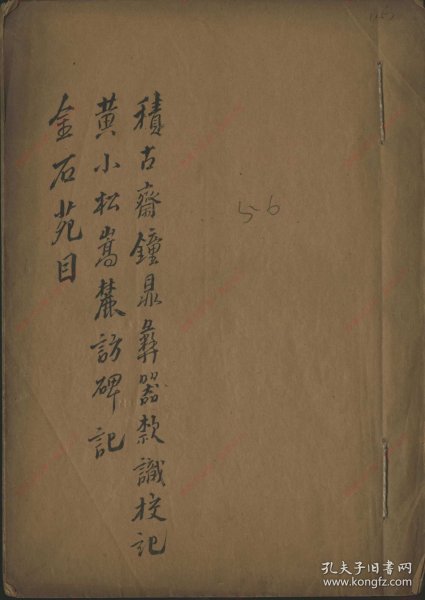 積古齋鐘鼎彝器欵識校記
黃小松嵩麓訪碑記
金石苑目
56
孔夫子旧书网
www.kongfz.com